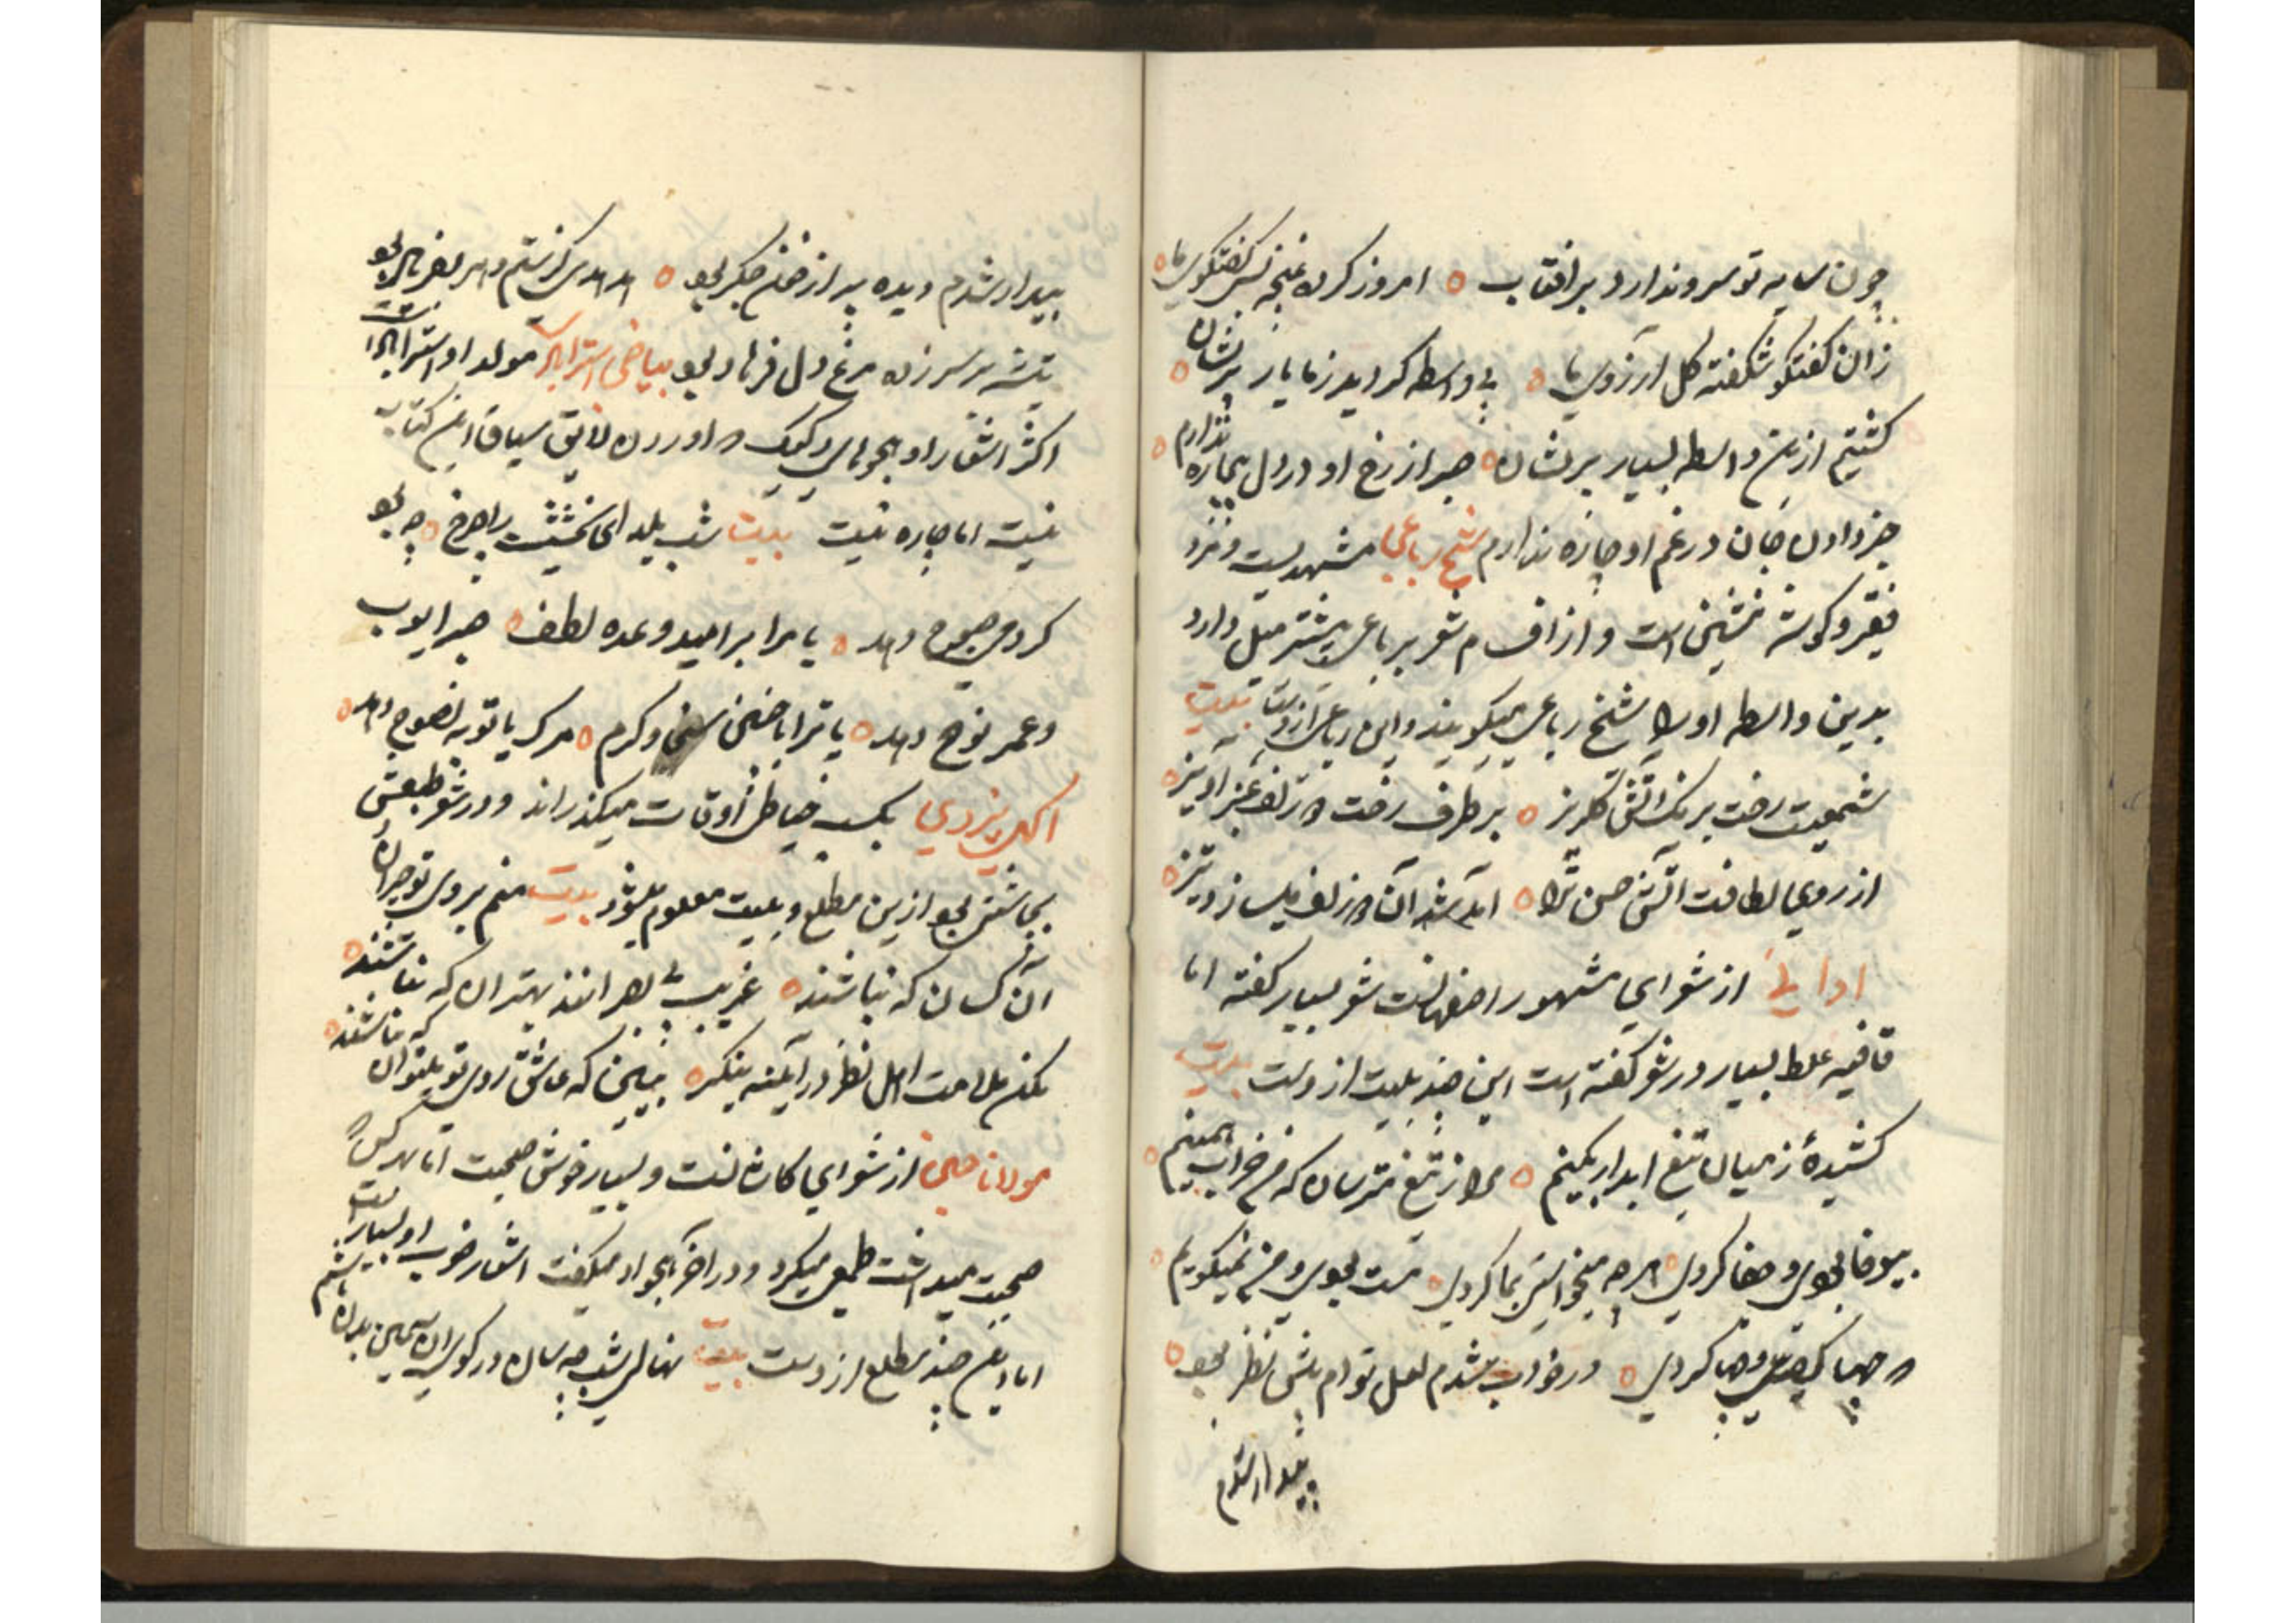 چون سایه تو سرو ندارد بر افتاب ٥ امروز کرده غنچه کس گفتگوی ما ٥
زان گفتگو شگفته گل آرزوی ما ٥ بی واسطه گردید ز ما یار پریشان ٥
گشتیم ازین واسطه بسیار پریشان ٥ صبر از رخ او در دل بیچاره ندارم ٥
جز دادن جان در غم او چاره ندارم شیخ رباعی مشهدیست و مرد
فقیر و گوشه نشین است و از اقسام شعر برباعی بیشتر میل دارد
بدین واسطه او را شیخ رباعی میگویند و این رباعی ازوست بیت
شمعیت رخت برنگ آتش گلریز ٥ بر طرف رخت دو زلف عنبرآمیز ٥
از روی لطافت آتش حسن ترا ٥ آمد شد آن دو زلف میسازد تیز ٥
ادایی از شعرای مشهور اصفهانست شعر بسیار گفته اما
قافیه غلط بسیار در شعر گفته است این چند بیت ازوست بیت
کشیدهٔ ز میان تیغ ابدار بکینم ٥ مرا ز تیغ مترسان که من خراب همینم ٥
بیوفا بودی و جفا کردی ٥ هر چه میخواستی بما کردی ٥ مست بودی و من نمیگویم ٥
که چها گفتی و چها کردی ٥ در خواب شدم لعل توام پیش نظر بود ٥
بیدار شدم
بیدار شدم دیده پر از خون جگر بود ٥
تیشه بر سر زدن مرغ دل فرهاد بود بیاضی استرابادی مولد او استرابادست
اکثر اشعار او هجوهای رکیک و اوردن لایق سیاق این کتاب
نیست اما چاره نیست بیت شب یلدای
کردمی صبوح دهد ٥ یا مرا بر امید وعده لطف ٥ صبر ایوب
و عمر نوح دهد ٥ یا ترا با چنین سخی و کرم ٥ مرگ یا توبه نصوح دهد ٥
اکهی یزدی بکسب خیاطی اوقات میگذراند و در شعر طبعش
بچاشنی بود ازین مطلع و بیت معلوم میشود بیت منم بروی تو حیران
آن کسان که نباشند ٥ غریب بی بصرانند بهتر آن که نباشند ٥
مکن ملامت اهل نظر در آینه بنگر ٥ ببین که عاشق روی تو میتوان که نباشند ٥
مولانا از شعرای کاشانست و بسیار خوش صحبت اما بهر کس که
صحبت میداشت طمع میکرد و در آخر هجو او میگفت اشعار خوب او بسیارست
اما این چند مطلع ازوست بیت نهانی شب چه سان در کوی آن سیمین بدن باشم